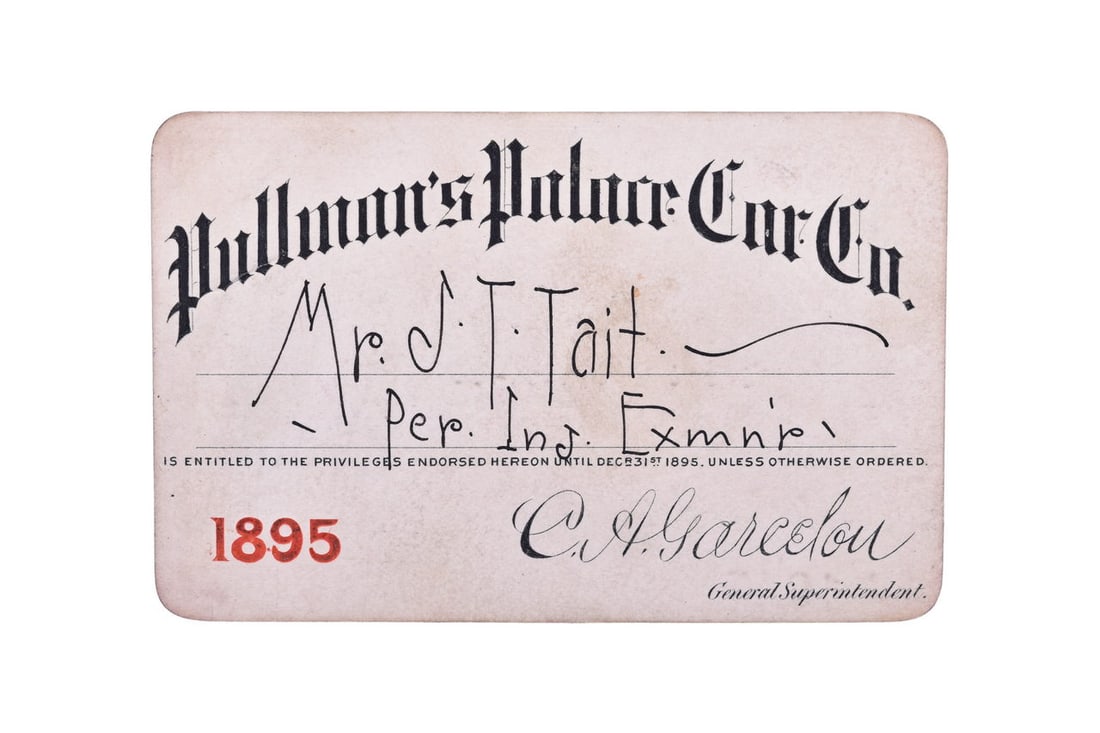 Pullman's Palace Car Co.
Mr. J. T. Tait.
Per. Inj. Exmn'r
IS ENTITLED TO THE PRIVILEGES ENDORSED HEREON UNTIL DECR. 31ST 1895, UNLESS OTHERWISE ORDERED.
1895
C. A. Garcelon
General Superintendent.